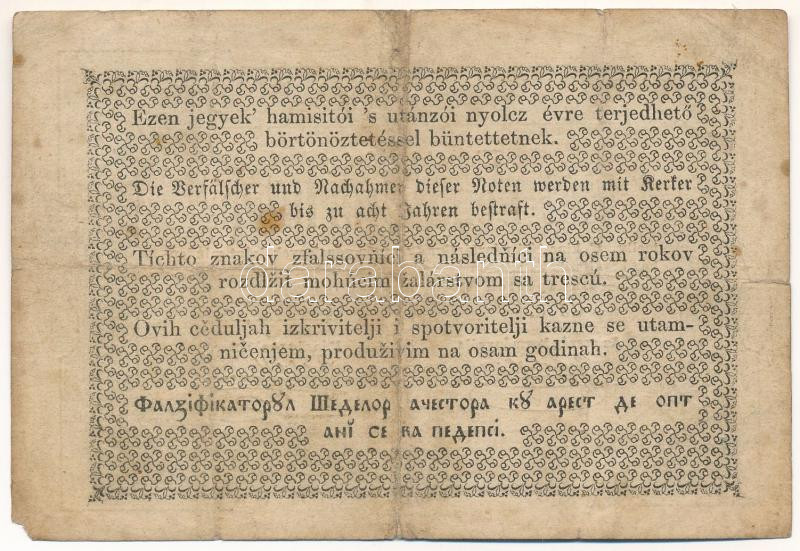 Ezen jegyek' hamisitói 's utánzói nyolcz évre terjedhető
börtönöztetéssel büntettetnek.
Die Verfälscher und Nachahmer dieser Noten werden mit Kerker
bis zu acht Jahren bestraft.
Tíchto znakov zfalssovňíci a následňíci na osem rokov
rozdlžit mohúcim žalárstvom sa trescú.
darabanth
Ovih ceduljah izkrivitelji i spotvoritelji kazne se utam-
ničenjem, produživim na osam godinah.
Фалзіфікаторꙋл Шеделор ачестора кꙋ арест де опт
ані се ва педепсі.